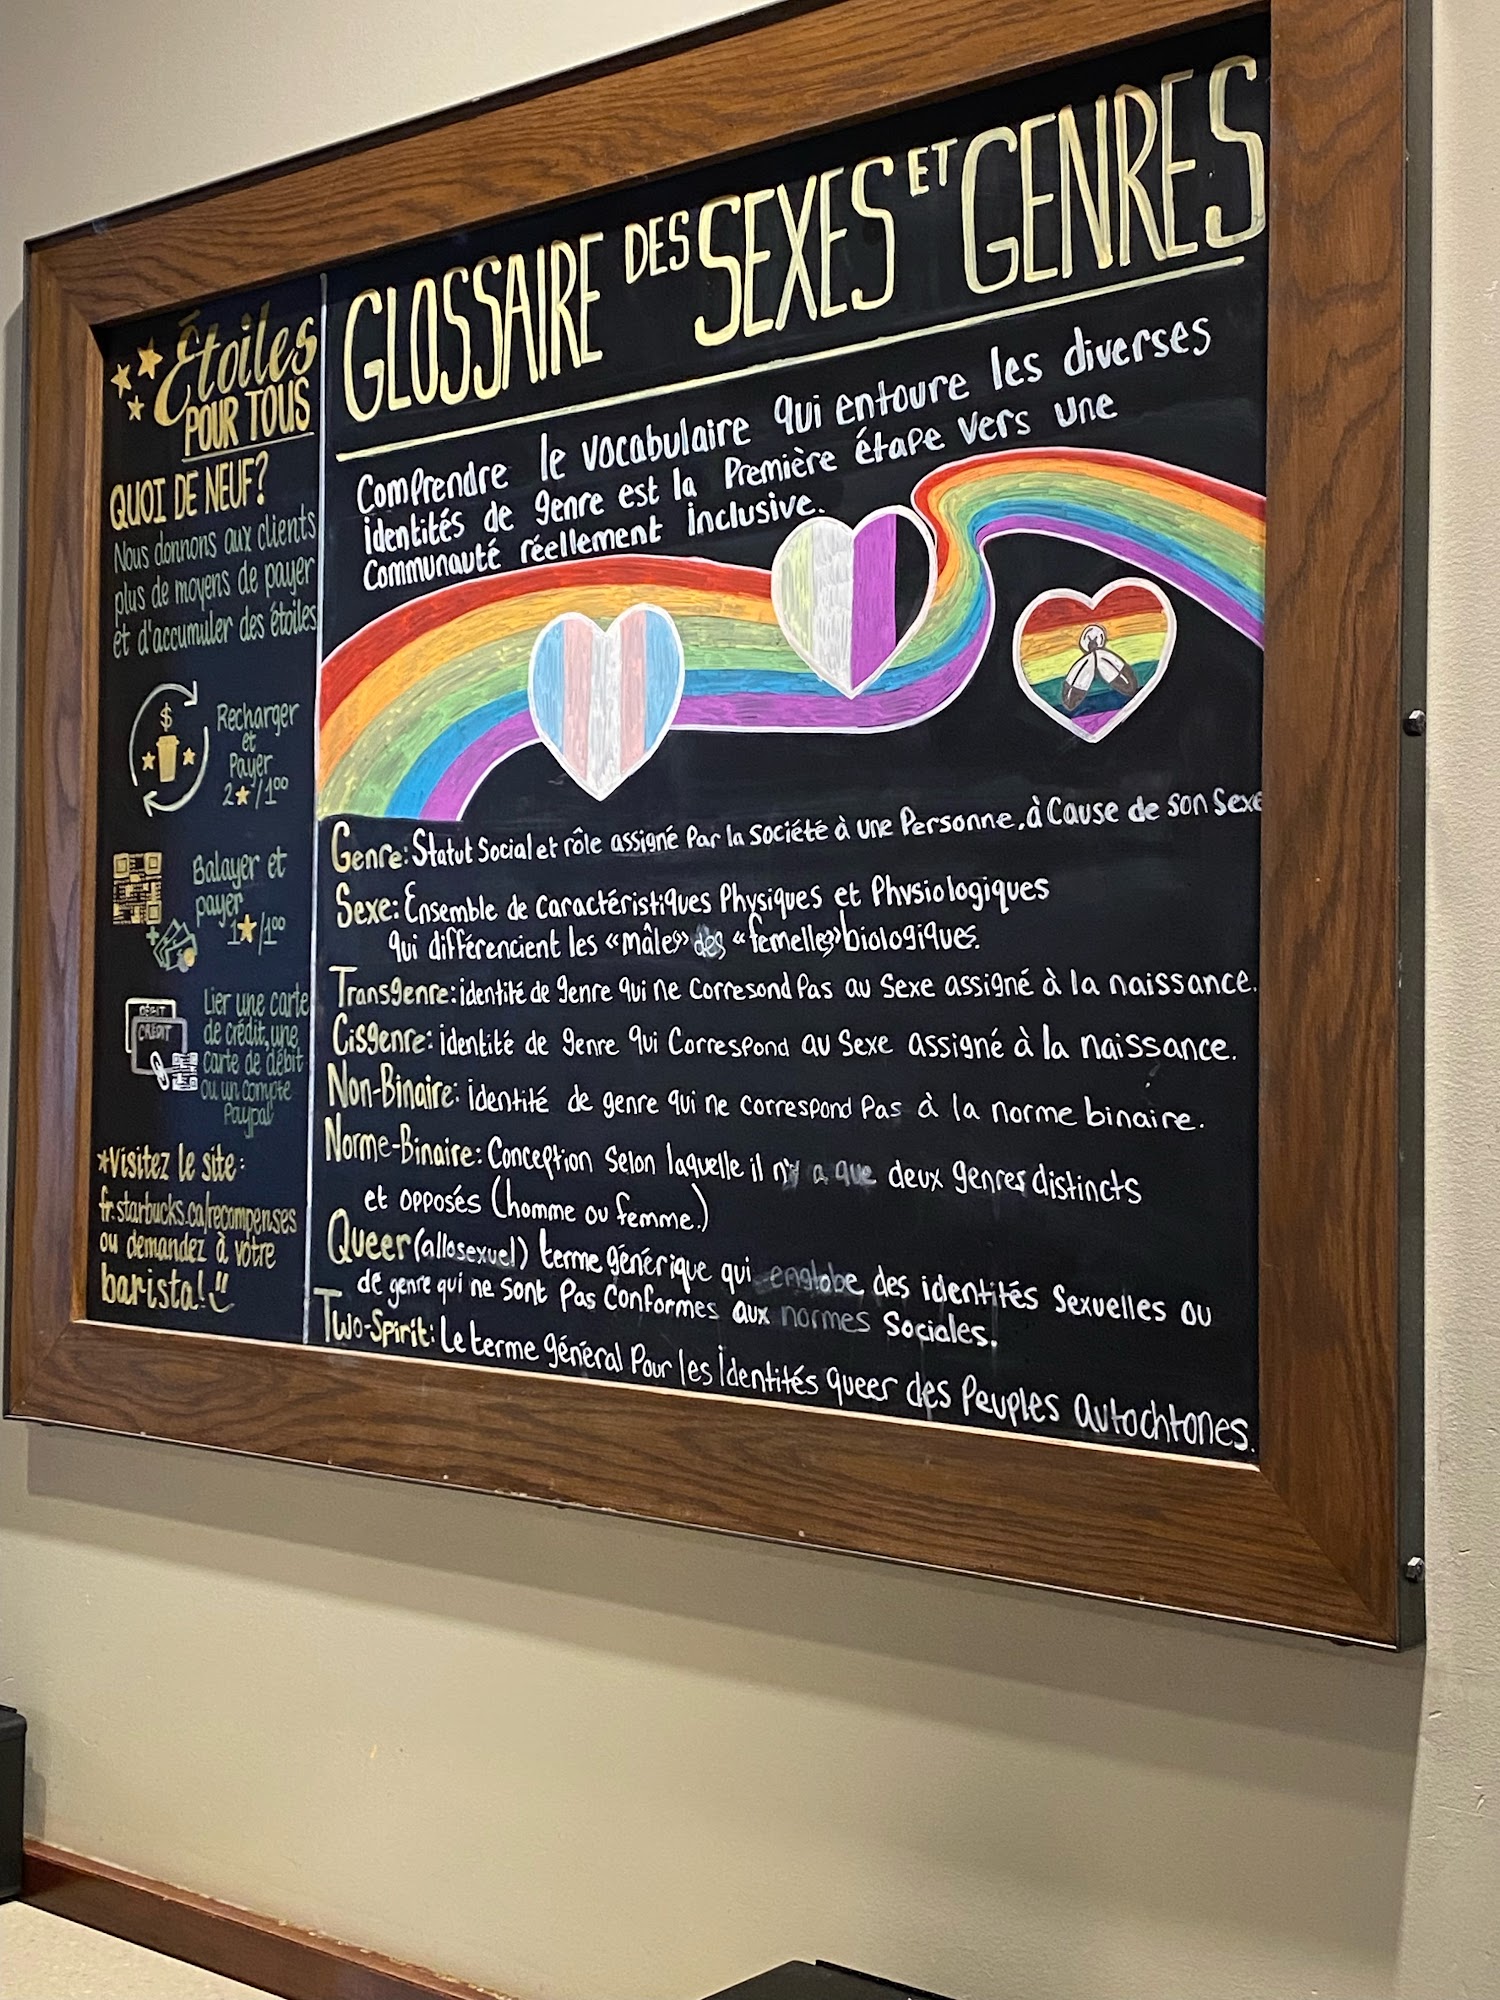 Étoiles
POUR TOUS
QUOI DE NEUF?
Nous donnons aux clients
plus de moyens de payer
et d'accumuler des étoiles
$
Recharger
et
Payer
2★/1⁰⁰
Balayer et
payer
1★/1⁰⁰
DÉBIT
CRÉDIT
Lier une carte
de crédit, une
carte de débit
ou un compte
Paypal
*Visitez le site:
fr.starbucks.ca/recompenses
ou demandez à votre
barista!
GLOSSAIRE DES SEXES ET GENRES
Comprendre le vocabulaire qui entoure les diverses
identités de genre est la Première étape vers une
Communauté réellement inclusive.
Genre: Statut Social et rôle assigné Par la société à une Personne, à Cause de son Sexe
Sexe: Ensemble de caractéristiques Physiques et Physiologiques
qui différencient les «mâles» des «femelles» biologiques.
Transgenre: identité de genre qui ne corresond Pas au Sexe assigné à la naissance.
Cisgenre: identité de genre qui Correspond au Sexe assigné à la naissance.
Non-Binaire: identité de genre qui ne correspond Pas à la norme binaire.
Norme-Binaire: Conception Selon laquelle il n'y a que deux genres distincts
et opposés (homme ou femme.)
Queer (allosexuel) terme générique qui englobe des identités Sexuelles ou
de genre qui ne sont Pas Conformes aux normes Sociales.
Two-Spirit: Le terme général Pour les identités queer des Peuples autochtones.